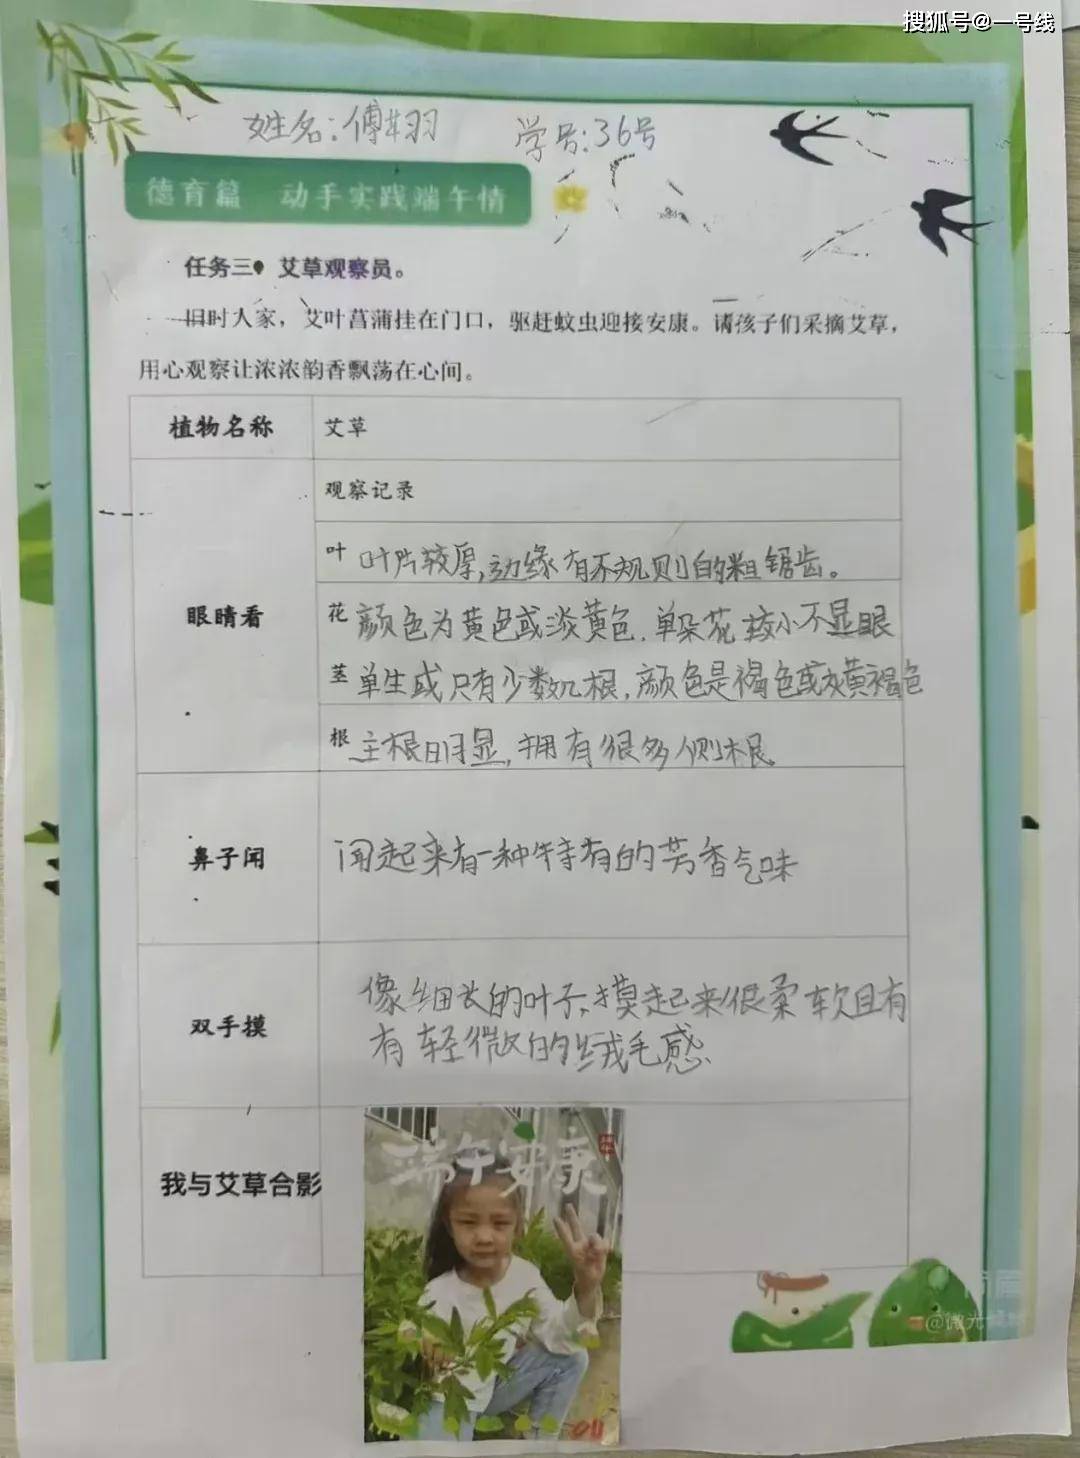 搜狐号@一号线
姓名:傅羽 学号:36号
德育篇 动手实践端午情
任务三 艾草观察员。
旧时人家，艾叶菖蒲挂在门口，驱赶蚊虫迎接安康。请孩子们采摘艾草，
用心观察让浓浓韵香飘荡在心间。
植物名称 艾草
观察记录
叶 叶片较厚,边缘有不规则的粗锯齿。
眼睛看
花 颜色为黄色或淡黄色.单朵花较小不显眼
茎 单生或只有少数几根,颜色是褐色或灰黄褐色
根 主根明显,拥有很多侧根
鼻子闻 闻起来有一种特有的芳香气味
像细长的叶子,摸起来很柔软且有
双手摸
有轻微的绒毛感
我与艾草合影
端午安康
@微光